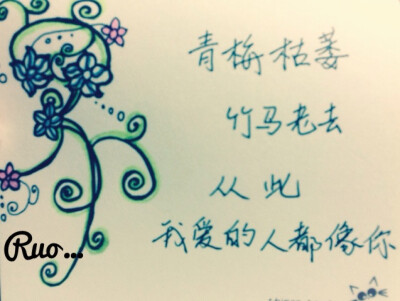 青梅枯萎
竹马老去
从此
我爱的人都像你
Ruo...